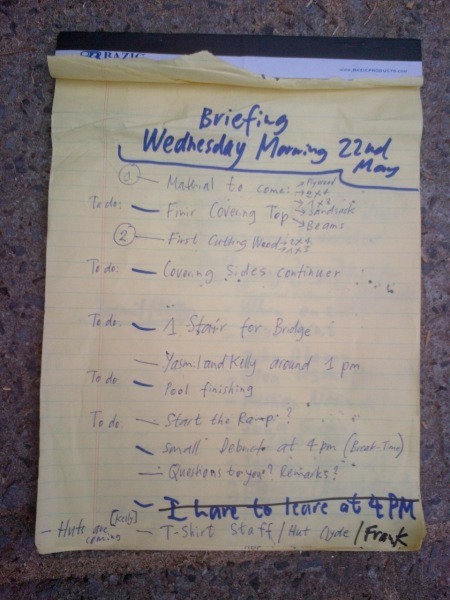 BAZIC
Briefing
Wednesday Morning 22nd
May
① — Material to come: → Plywood
→ 2x4
→ 1x3
To do: — Finir Covering Top → Sandsack
→ Beams
② — First Cutting Wood → 2x4
→ 1x3
To do: — Covering Sides continuer
To do: — 1 Stair for Bridge
— Yasmil and Kelly around 1 pm
To do — Pool finishing
To do: — Start the Ramp?
— Small Debrief at 4 pm (Break-Time)
— Questions to you? Remarks?
— I have to leave at 4 PM
— Huts are coming [Kelly] — T-Shirt Staff / Hut Clyde / Frank